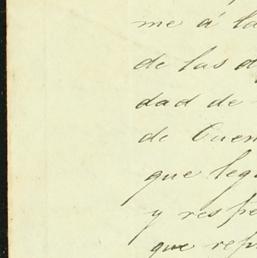 me á la
de las d
dad de
de Cuen
que leg
y respe
que rep